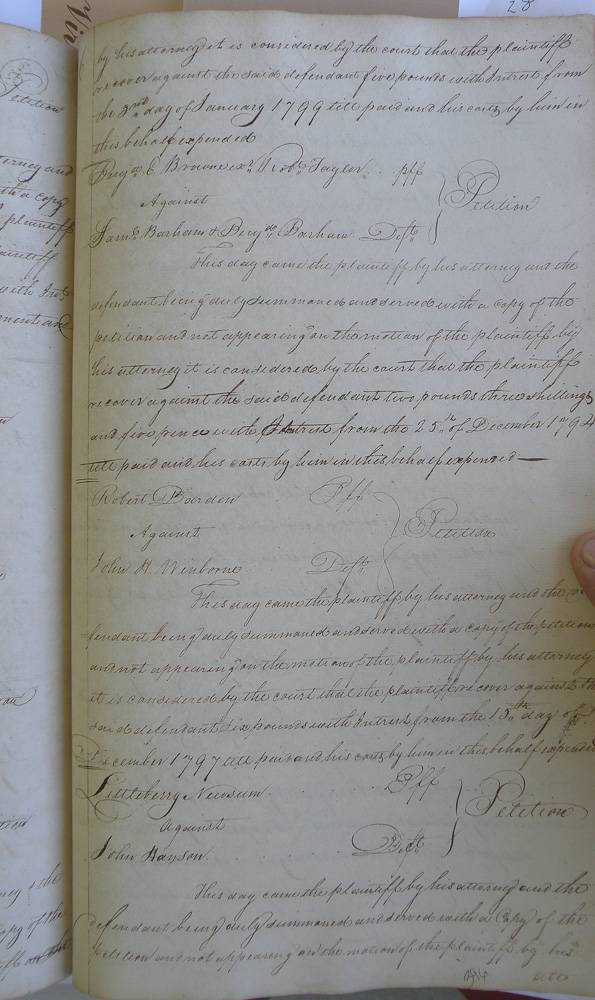 28
by his attorney it is considered by the court that the plaintiff
recover against the said defendant five pounds with Intrest from
the 3rd day of January 1799 till paid and his costs by him in
this behalf expended
Benja. E Browne exr. Robt. Taylor pff
Against Petition
Saml. Barham & Benja. Barham Defts.
This day came the plaintiff by his attorney and the
defendant being duly summoned and served with a copy of the
petition and not appearing on the motion of the plaintiff by
his attorney it is considered by the court that the plaintiff
recover against the said defendant two pounds three shillings
and five pence with Intrest from the 25th of December 1794
till paid and his costs by him in this behalf expended
Robert Darden Pff
Against Petition
John H. Winborne Deft.
This day came the plaintiff by his attorney and the de
fendant being duly summoned and served with a copy of the petition
and not appearing on the motion of the plaintiff by his attorney
it is considered by the court that the plaintiff recover against the
said defendant six pounds with Intrest from the 15th day of
December 1797 till paid and his costs by him in this behalf expended
Littleberry Newsum Pff
Against Petition
John Hayson Deft.
This day came the plaintiff by his attorney and the
defendant being duly summoned and served with a Copy of the
petition and not appearing on the motion of the plaintiff by his
atto